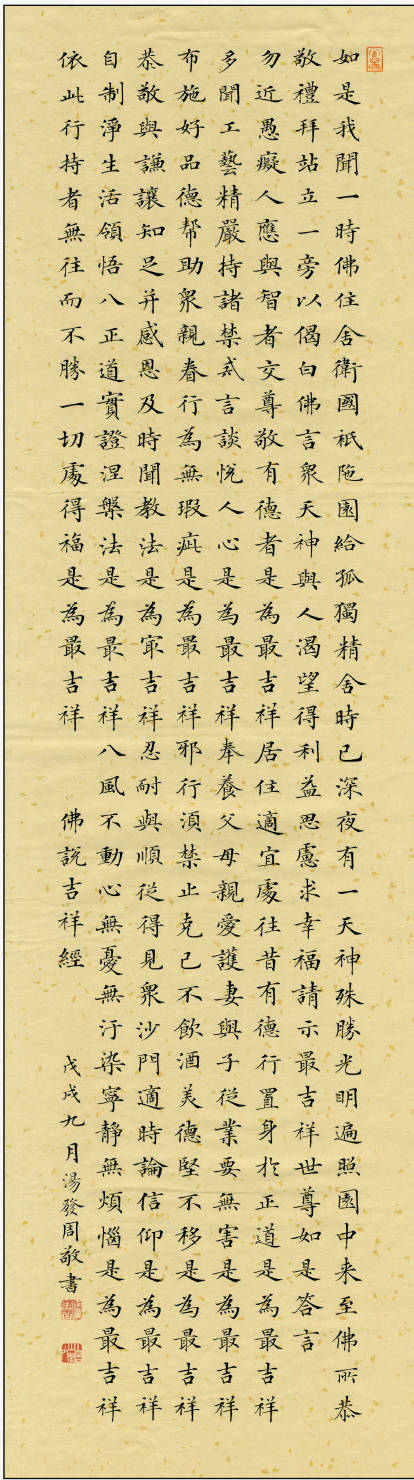 如是我聞一時佛住舍衛國祇陁園給孤獨精舍時已深夜有一天神殊勝光明遍照園中来至佛所恭
敬禮拜站立一旁以偈白佛言衆天神與人渴望得利益思慮求幸福請示最吉祥世尊如是答言
勿近愚癡人應與智者交尊敬有德者是為最吉祥居住適宜處往昔有德行置身於正道是為最吉祥
多聞工藝精嚴持諸禁戒言談悅人心是為最吉祥奉養父母親愛護妻與子從業要無害是為最吉祥
布施好品德幫助衆親眷行為無瑕疵是為最吉祥邪行須禁止克己不飲酒美德堅不移是為最吉祥
恭敬與謙讓知足并感恩及時聞教法是為冣吉祥忍耐與順從得見衆沙門適時論信仰是為最吉祥
自制淨生活領悟八正道實證涅槃法是為最吉祥八風不動心無憂無汙染寧静無煩惱是為最吉祥
依此行持者無往而不勝一切處得福是為最吉祥 佛說吉祥經 戊戌九月湯發周敬書